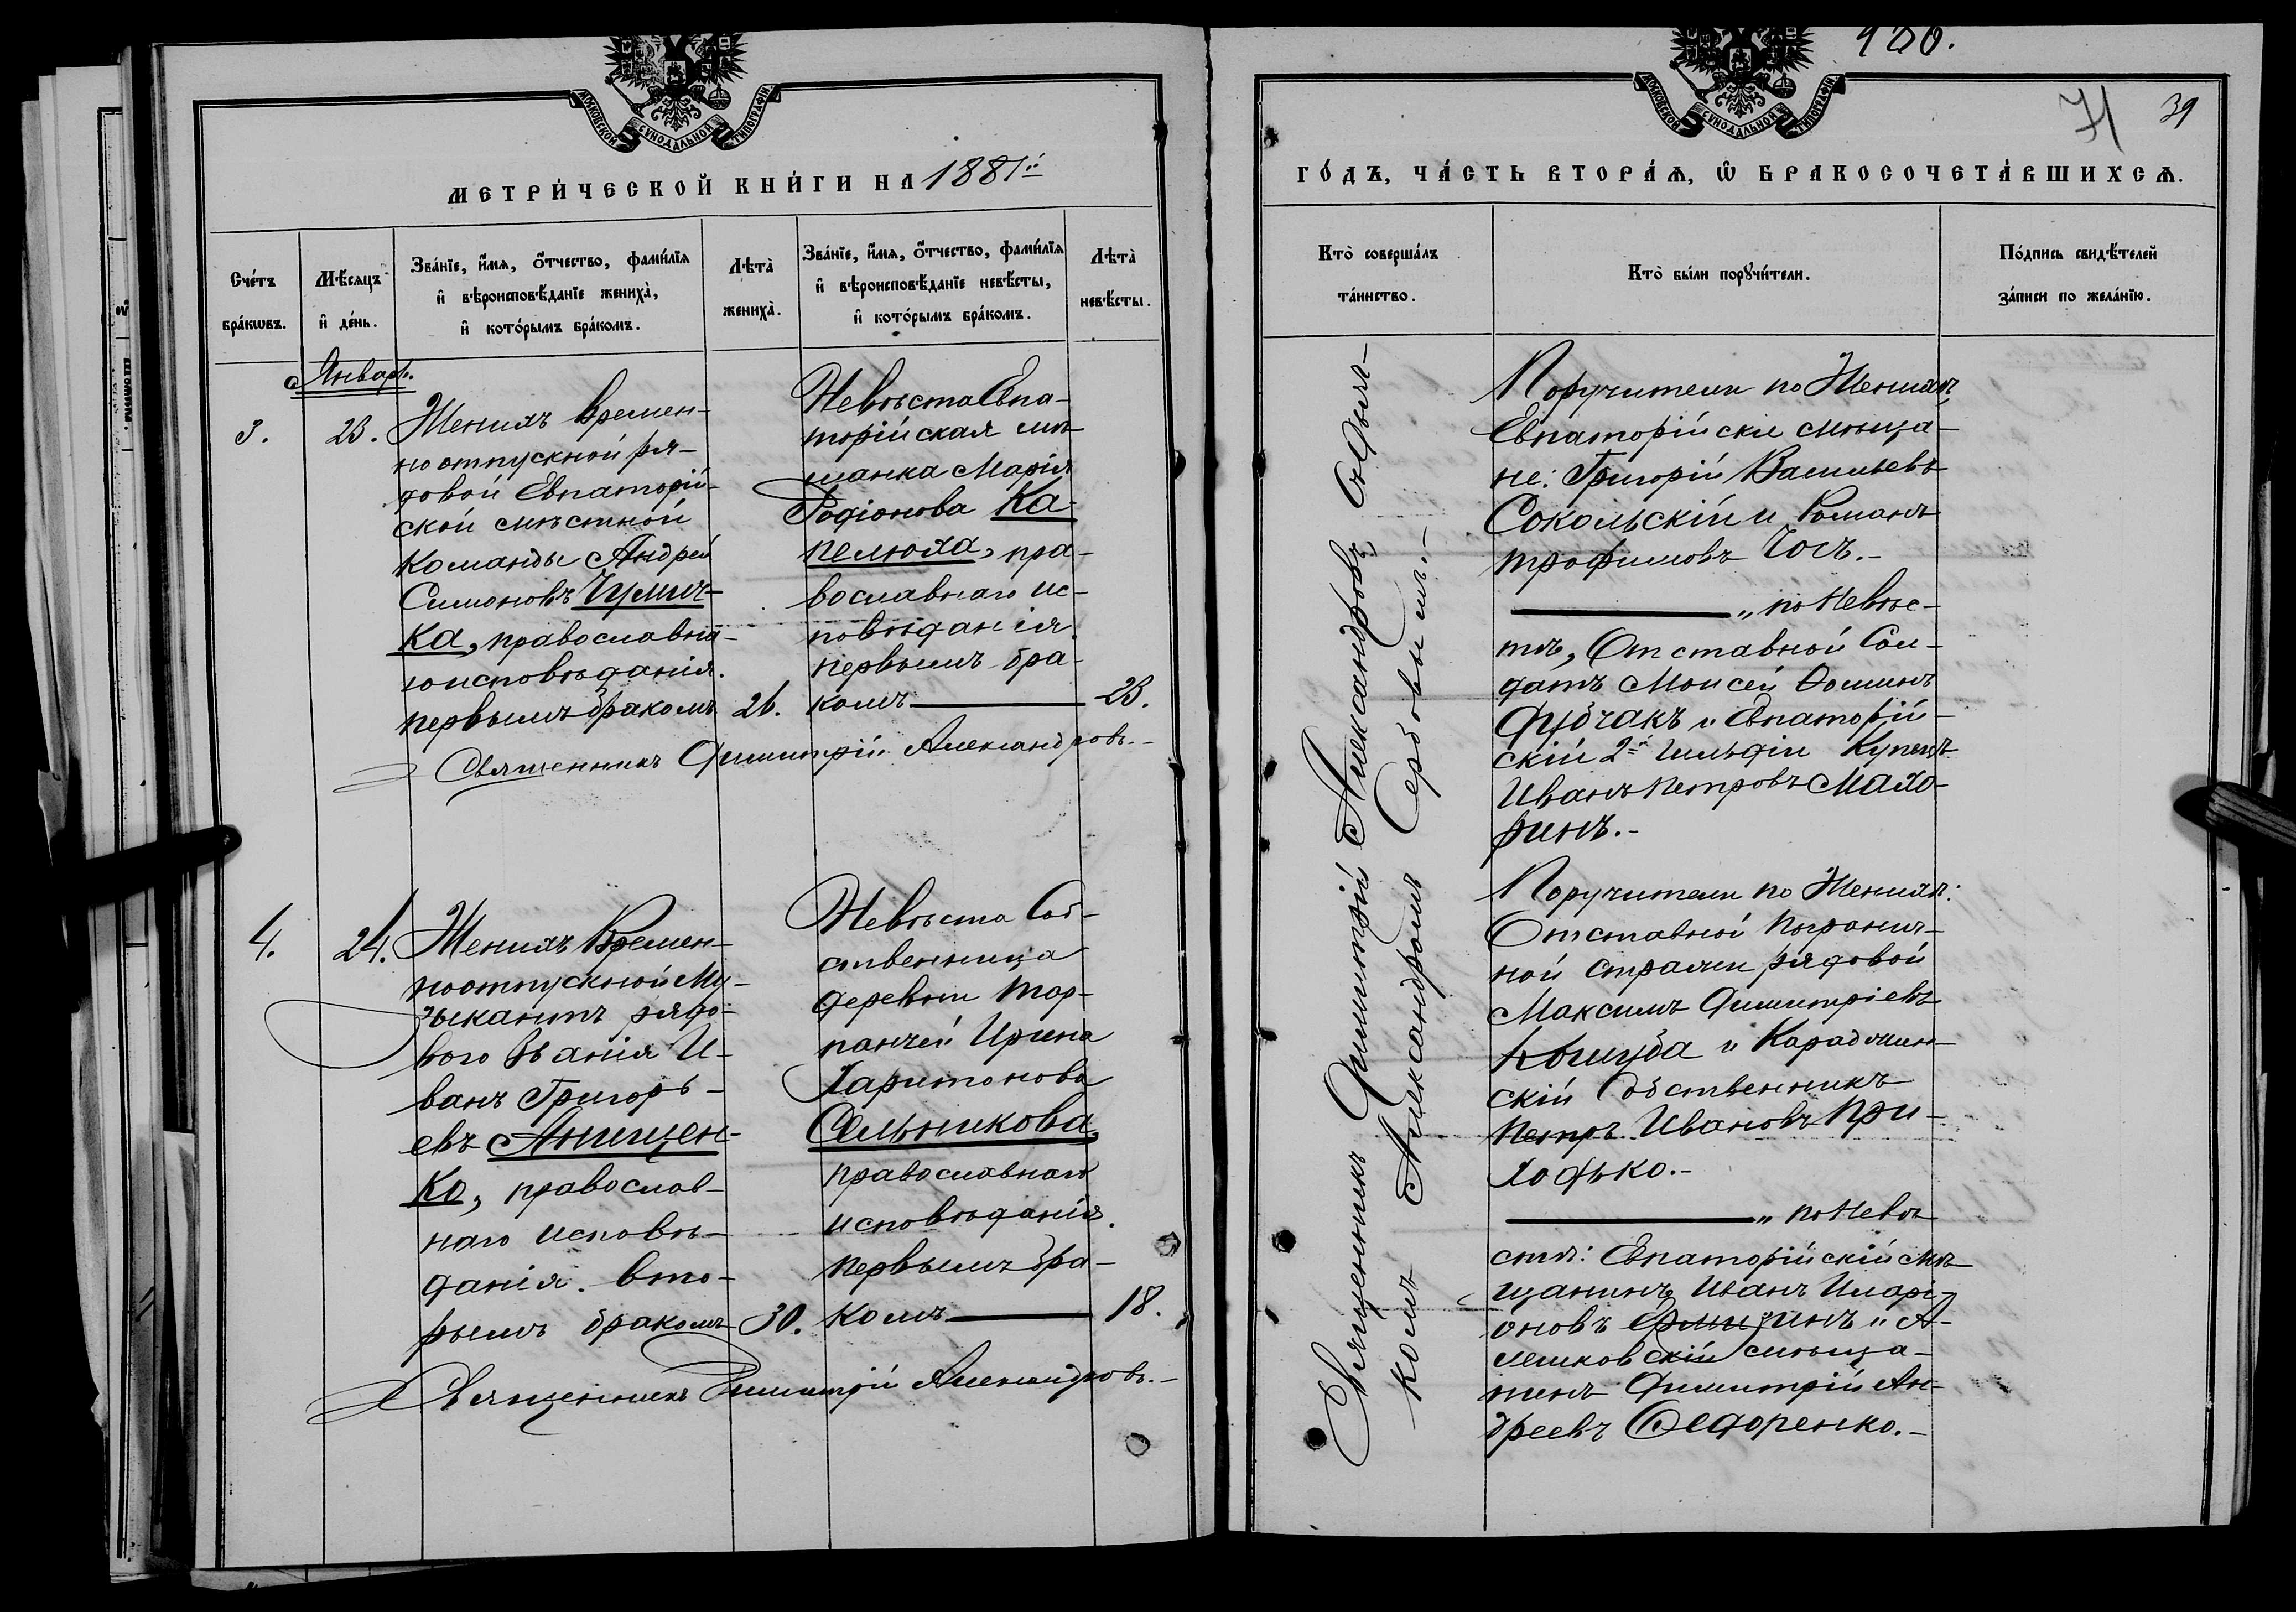 МОСКОВСКОЙ СУНОДАЛЬНОЙ ТИПОГРАФІИ
МЕТРИ́ЧЕСКОЙ КНИ́ГИ НА 1881й
Сче́тъ бра́кѡвъ.
Мѣ́сяцъ и҆ де́нь.
Зва́нїе, и҆́мѧ, ѻ҆́тчество, фами́лїѧ
и҆ вѣроисповѣ́данїе жениха̀,
и҆ кото́рымъ бра́комъ.
Лѣта̀ жениха̀.
Зва́нїе, и҆́мѧ, ѻ҆́тчество, фами́лїѧ
и҆ вѣроисповѣ́данїе невѣ́сты,
и҆ кото́рымъ бра́комъ.
Лѣта̀ невѣ́сты.
Январь.
3.
23.
Женихъ Времен-
ноотпускной ря-
довой Евпаторій-
ской мѣстной
Команды Андрей
Симоновъ Чумич-
ка, православна-
го исповѣданія.
первымъ бракомъ
26.
Невѣста Евпа-
торійская мѣ-
щанка Марія
Родіонова Ка-
пелюха, пра-
вославнаго ис-
повѣданія.
первымъ бра-
комъ
23.
Священникъ Димитрій Александровъ.-
4.
24.
Женихъ Времен-
ноотпускной Му-
зыкантъ рядо-
вого званія И-
ванъ Григорь-
евъ Анищен-
ко, православ-
наго исповѣ-
данія. вто-
рымъ бракомъ
30.
Невѣста Соб-
ственница
деревни Тар-
панчей Ирина
Харитонова
Сальникова,
православнаго
исповѣданія.
первымъ бра-
комъ
18.
Священникъ Димитрій Александровъ.-
МОСКОВСКОЙ СУНОДАЛЬНОЙ ТИПОГРАФІИ
71
39
ГО́ДЪ, ЧА́СТЬ ВТОРА́Ѧ, Ѽ БРАКОСОЧЕТА́ВШИХСѦ.
Кто̀ соверша́лъ
та́инство.
Кто̀ бы́ли порꙋчи́тели.
По́дпись свидѣ́телей
за́писи по жела́нїю.
Священникъ Димитрій Александровъ съ Дьяч-
комъ Александромъ Сербовымъ.-
Поручители по Женихѣ,
Евпаторійскіе мѣща-
не: Григорій Васильевъ
Сокольскій и Романъ
Трофимовъ Чосъ.-
" по Невѣс-
тѣ, Отставной Сол-
датъ Моисей Ѳоминъ
Дубчакъ и Евпаторій-
скій 2й Гильдіи Купецъ
Иванъ Петровъ Махо-
ринъ.-
Поручители по Женихѣ:
Отставной погранич-
ной стражи рядовой
Максимъ Димитріевъ
Коцюба и Караджин-
скій Собственникъ
Петръ Ивановъ При-
ходько.-
" по Невѣ-
стѣ: Евпаторійскій мѣ-
щанинъ Иванъ Иларі-
оновъ и А-
лешковскій мѣща-
нинъ Димитрій Ан-
дреевъ Ѳедоренко.-